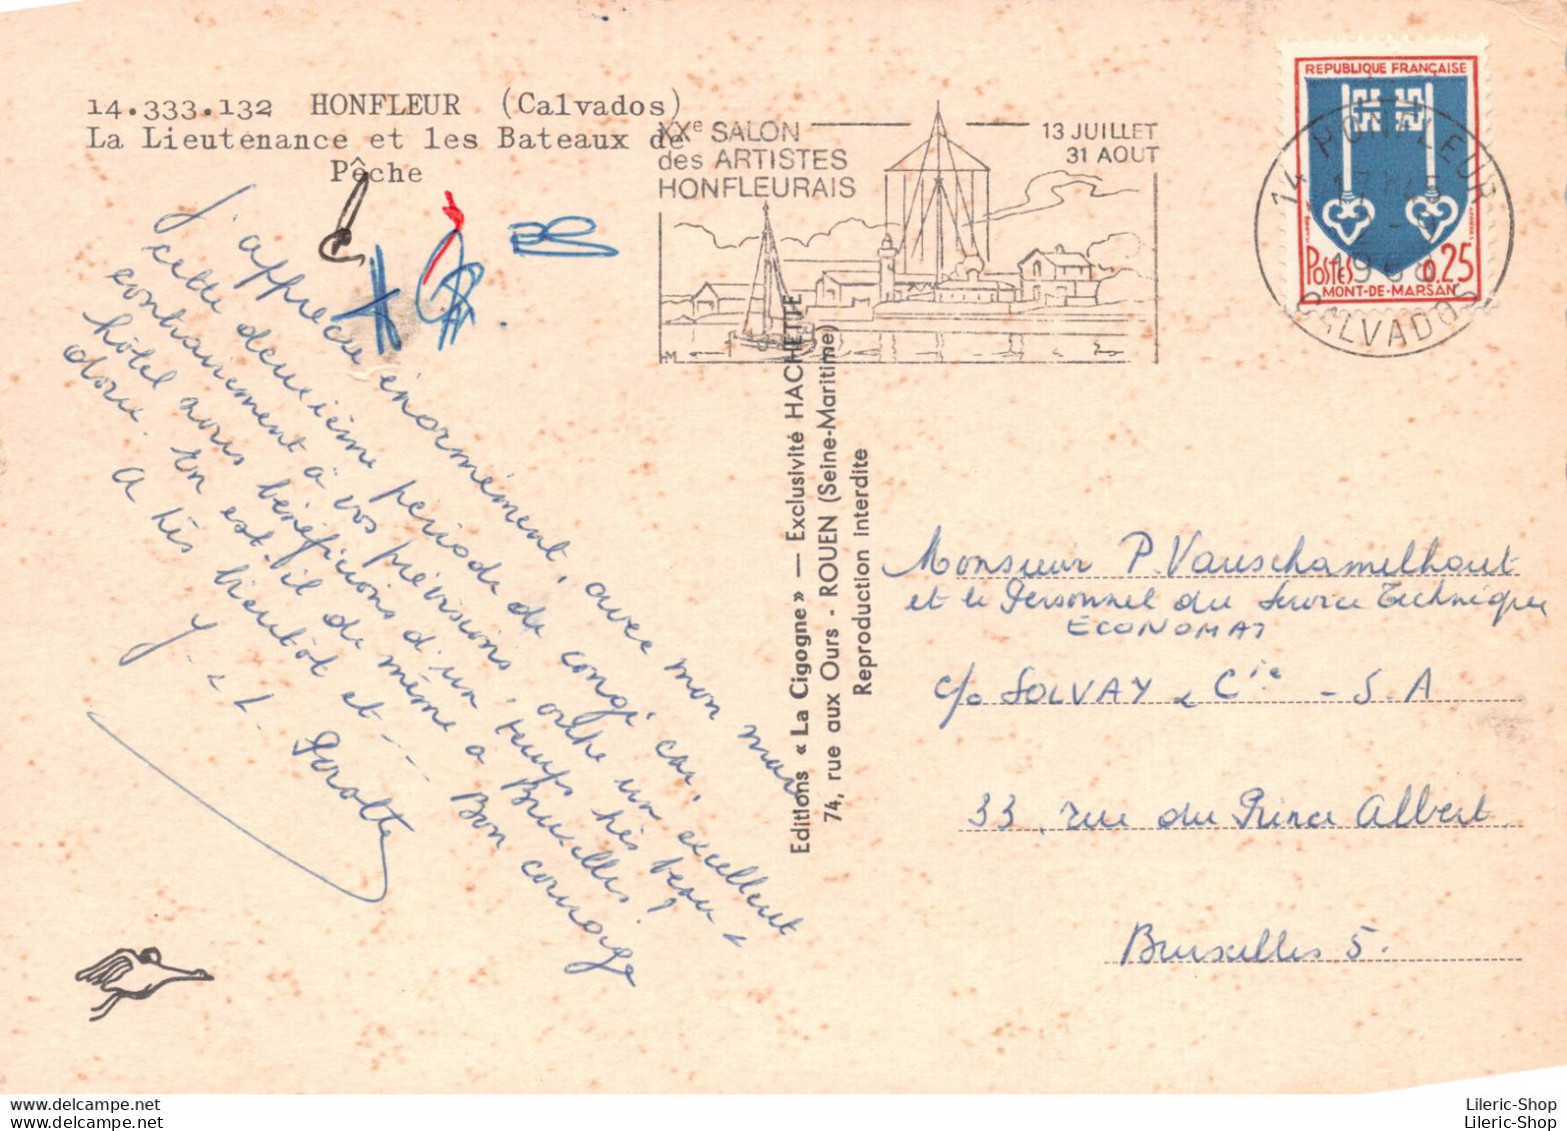 14.333.132 HONFLEUR (Calvados)
La Lieutenance et les Bateaux de
Pêche
XXe SALON
des ARTISTES
HONFLEURAIS
13 JUILLET
31 AOUT
M
REPUBLIQUE FRANÇAISE
POSTES 0,25
MONT-DE-MARSAN
14 HONFLEUR
1968
CALVADOS
J'apprécie énormément, avec mon mari
cette deuxième période de congé, car,
contrairement à vos prévisions, outre un excellent
hôtel nous bénéficions d'un temps très beau -
doux. En est-il de même à Bruxelles!
A très bientôt et ... Bon courage
Editions « La Cigogne » — Exclusivité HACHETTE
74, rue aux Ours - ROUEN (Seine-Maritime)
Reproduction interdite
Monsieur P. Vanschamelhout
et le Personnel du Service Technique
ECONOMAT
c/o SOLVAY & Cie - S.A
33, rue du Prince Albert
Bruxelles 5.
Lileric-Shop
Lileric-Shop